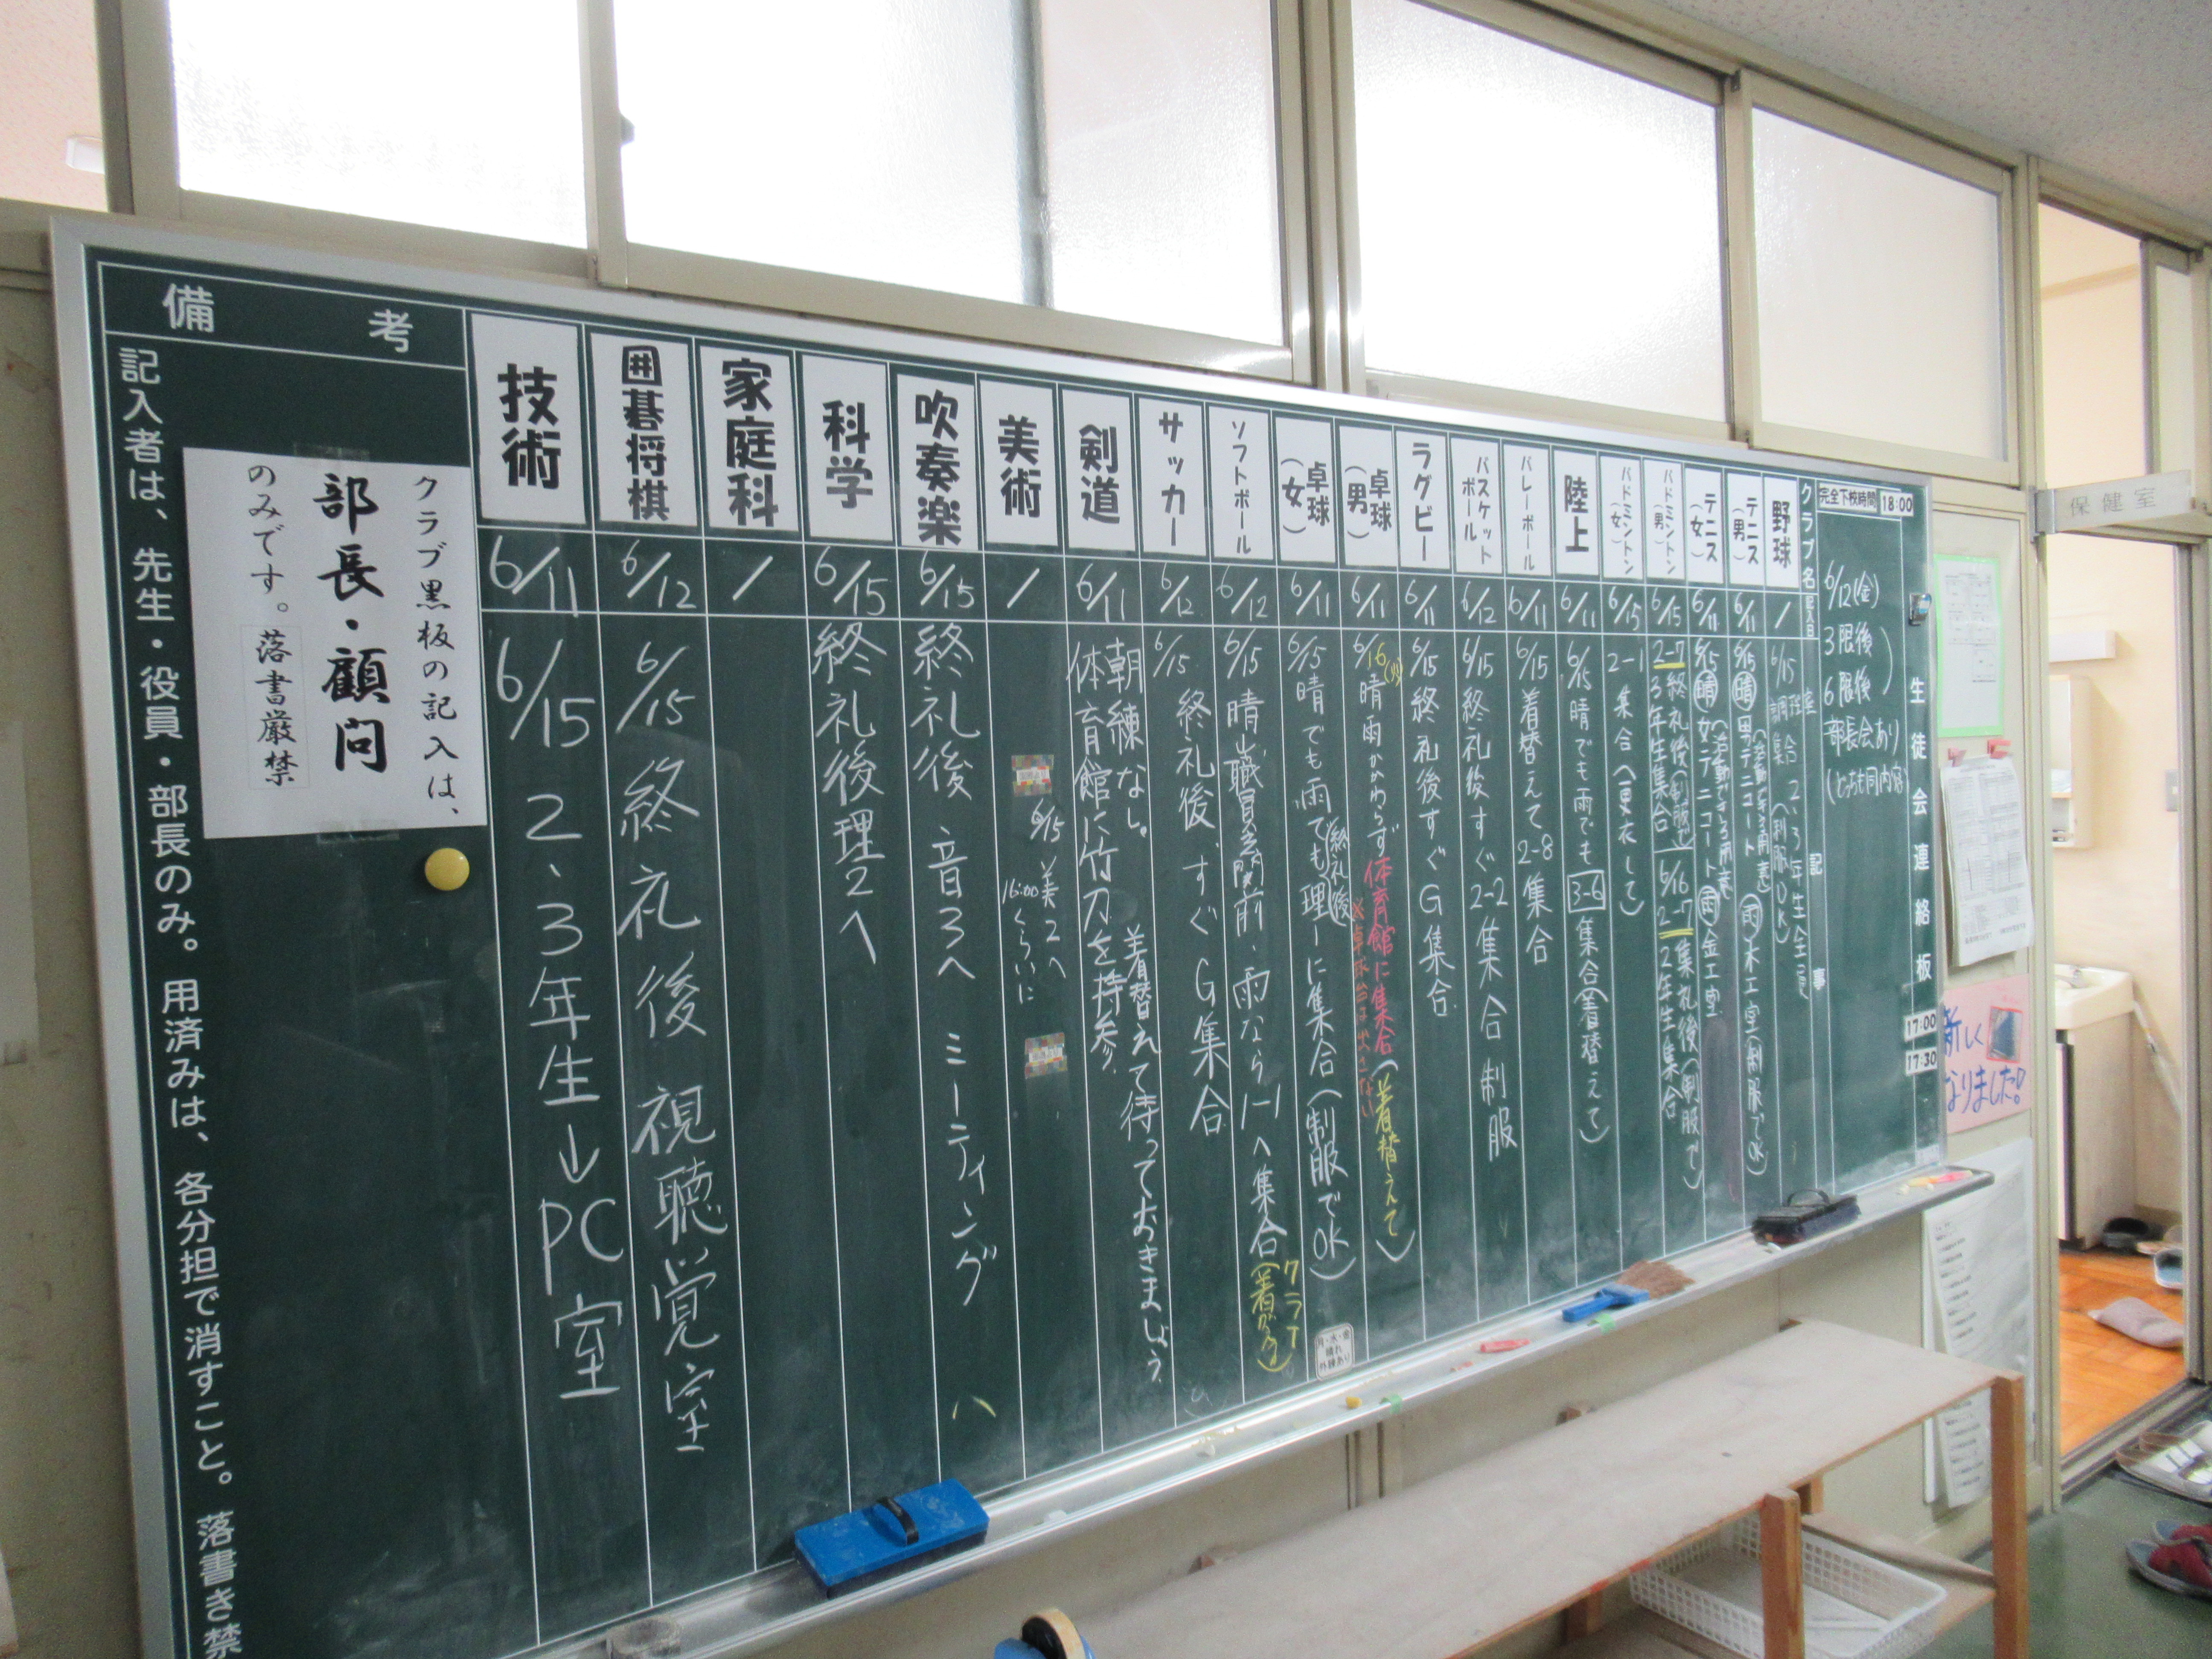 生徒会連絡板
完全下校時間 18:00
17:00
17:30
6/12(金)
3限後
6限後
部長会あり
(どちらも同内容)
クラブ名
記入日
記事
野球
/
6/15
テニス(男)
6/11
6/15
晴 男テニコート
雨 木工室(制服でOK)
テニス(女)
6/11
6/15
晴 女テニコート
雨 金工室
バドミントン(男)
6/15
2-7 終礼後(制服で)
3年生集合
2-7
2年生集合
バドミントン(女)
6/15
2-1 集合(更衣して)
陸上
6/11
6/15 晴でも雨でも 3-6 集合(着替えて)
バレーボール
6/11
6/15 着替えて 2-8 集合
バスケットボール
6/12
6/15 終礼後すぐ 2-2 集合 制服
ラグビー
6/11
6/15 終礼後すぐG集合
卓球(男)
6/11
6/16(火) 晴雨かかわらず 体育館に集合(着替えて)
卓球(女)
6/11
6/15 晴でも雨でも理一に集合(制服でOK)
終礼後
ソフトボール
6/12
6/15 晴
雨なら1-1へ集合
サッカー
6/12
6/15 終礼後、すぐG集合
剣道
6/11
朝練なし。 着替えて待っておきましょう
体育館に竹刀を持参。
美術
/
6/15 美2へ
16:00くらいに
吹奏楽
6/15
終礼後 音3へ ミーティング
科学
6/15
終礼後理2へ
家庭科
/
囲碁将棋
6/12
6/15 終礼後 視聴覚室
技術
6/11
6/15 2、3年生→PC室
備考
クラブ黒板の記入は、
部長・顧問
のみです。落書厳禁
記入者は、先生・役員・部長のみ。用済みは、各分担で消すこと。落書き禁
保健室
新しく
なりました!